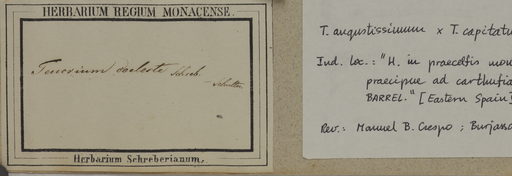 HERBARIUM REGIUM MONACENSE.
Teucrium coeleste Schreb.
Herbarium Schreberianum.
T. angustissimum x T. capitatu
Ind. loc.: "H. in praecelsis mon
praecipue ad carthusia
BARREL." [Eastern Spain]
Rev.: Manuel B. Crespo ; Burjasso